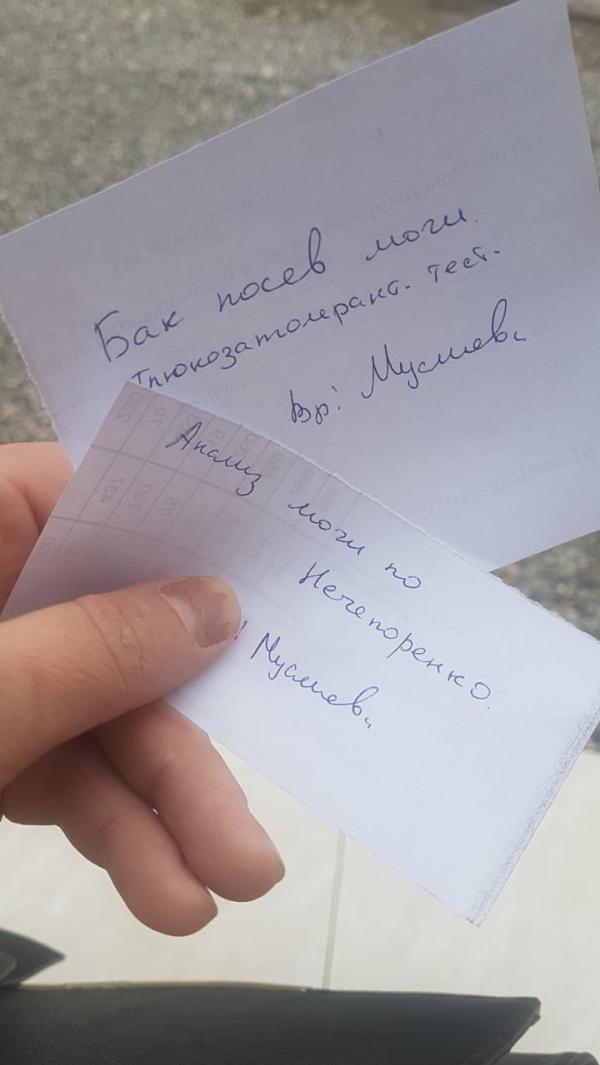 Бак посев мочи.
Глюкозатолерант. тест.
Вр: Муслиева
Анализ мочи по
Нечепоренко.
: Муслиева